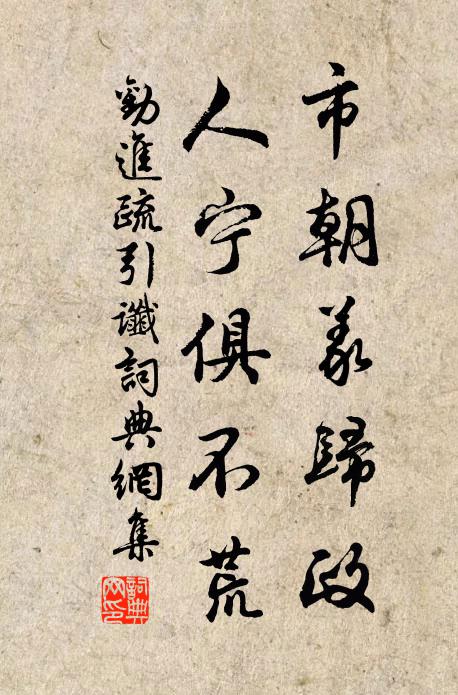 市朝義歸政
人宁俱不荒
勸進疏引讖詞典網集
詞典
网印